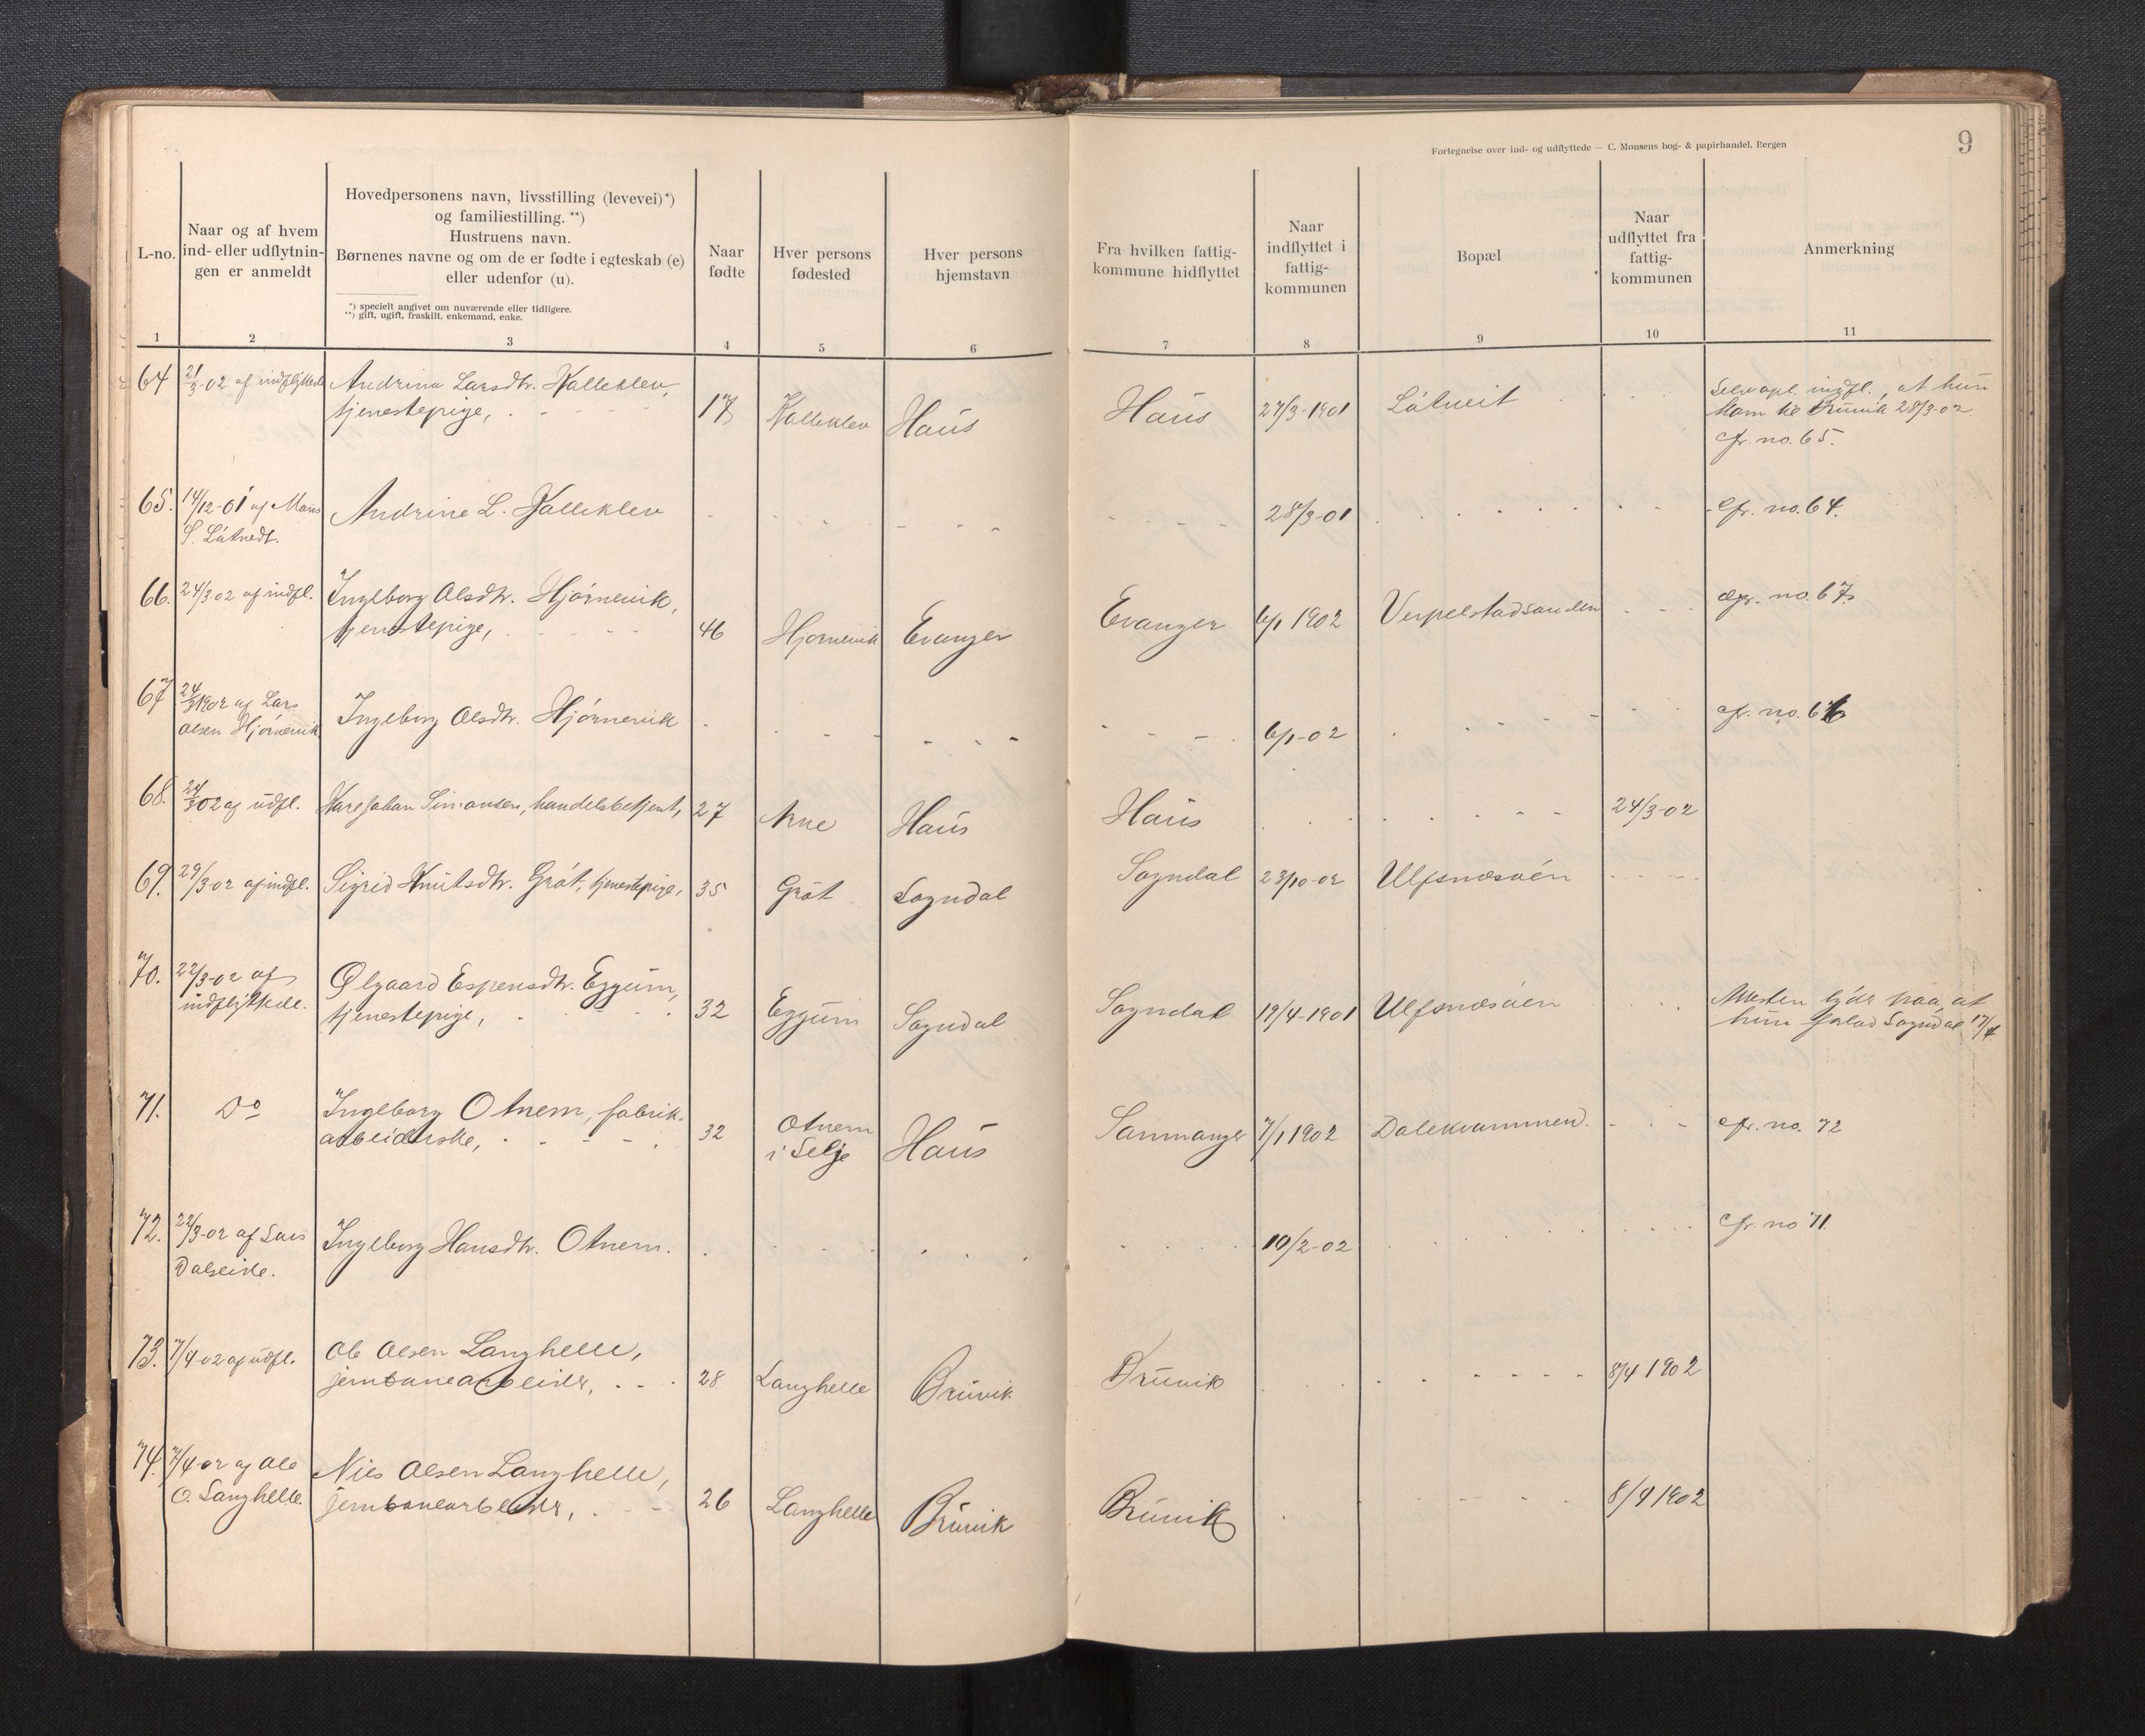 Fortegnelse over ind- og udflyttede — C. Monsens bog- & papirhandel, Bergen
9
L-no.
Naar og af hvem
ind- eller udflytnin-
gen er anmeldt
Hovedpersonens navn, livsstilling (levevei)*)
og familiestilling. **)
Hustruens navn.
Børnenes navne og om de er fødte i egteskab (e)
eller udenfor (u).
*) specielt angivet om nuværende eller tidligere.
**) gift, ugift, fraskilt, enkemand, enke.
Naar
fødte
Hver persons
fødested
Hver persons
hjemstavn
Fra hvilken fattig-
kommune hidflyttet
Naar
indflyttet i
fattig-
kommunen
Bopæl
Naar
udflyttet fra
fattig-
kommunen
Anmerkning
1 2 3 4 5 6 7 8 9 10 11
64 21/3-02 af indflyttede Andrina Larsdtr. Kalleklev,
tjenestepige, 17 Kalleklev Haus Haus 27/3-1901 Låtveit
indfl., at hun
kom til Bruvik 28/3-02
cfr. no. 65.
65. 14/12-01 af Mons
S. Låtvedt.
Andrine L. Kalleklev 28/3-01 Cfr. no. 64.
66. 24/3 02 af indfl. Ingeborg Olsdtr. Hjørnevik,
tjenestepige, 46 Hjørnevik Evanger Evanger 6/1 1902 Vespelstadsanden cfr. no. 67.
67 24/3 1902 af Lars
Olsen Hjørnevik
Ingeborg Olsdtr. Hjørnevik 6/1-02 cfr. no. 66
68. 24/3 02 af udfl. Johan Simonsen, handelsbetjent, 27 Arne Haus Haus 24/3-02
69. 29/3-02 af indfl. Sigrid Knutsdtr. Gråt, tjenestepige, 35 Gråt Sogndal Sogndal 23/10-02 Ulfsnesøen
70. 22/3-02 af
indflyttede.
Ølgaard Espensdtr. Eggum,
tjenestepige, 32 Eggum Sogndal Sogndal 19/4-1901 Ulfsnesøen
Attesten lyder paa, at
hun forlod Sogndal 17/4
71. Do Ingeborg Otnem, fabrik-
arbeiderske, 32 Otnem
i Selje
Haus Samnanger 7/1 1902 Dalekvammen. cfr. no. 72
72. 22/3-02 af Lars
Dalseide.
Ingeborg Hansdtr. Otnem. 10/2-02 Cfr. no 71
73. 7/4-02 af udfl. Ole Olsen Langhelle,
jernbanearbeider, 28 Langhelle Bruvik Bruvik 8/4 1902
74. 7/4-02 af Ole
O. Langhelle.
Nils Olsen Langhelle,
jernbanearbeider, 26 Langhelle Bruvik Bruvik 8/4 1902